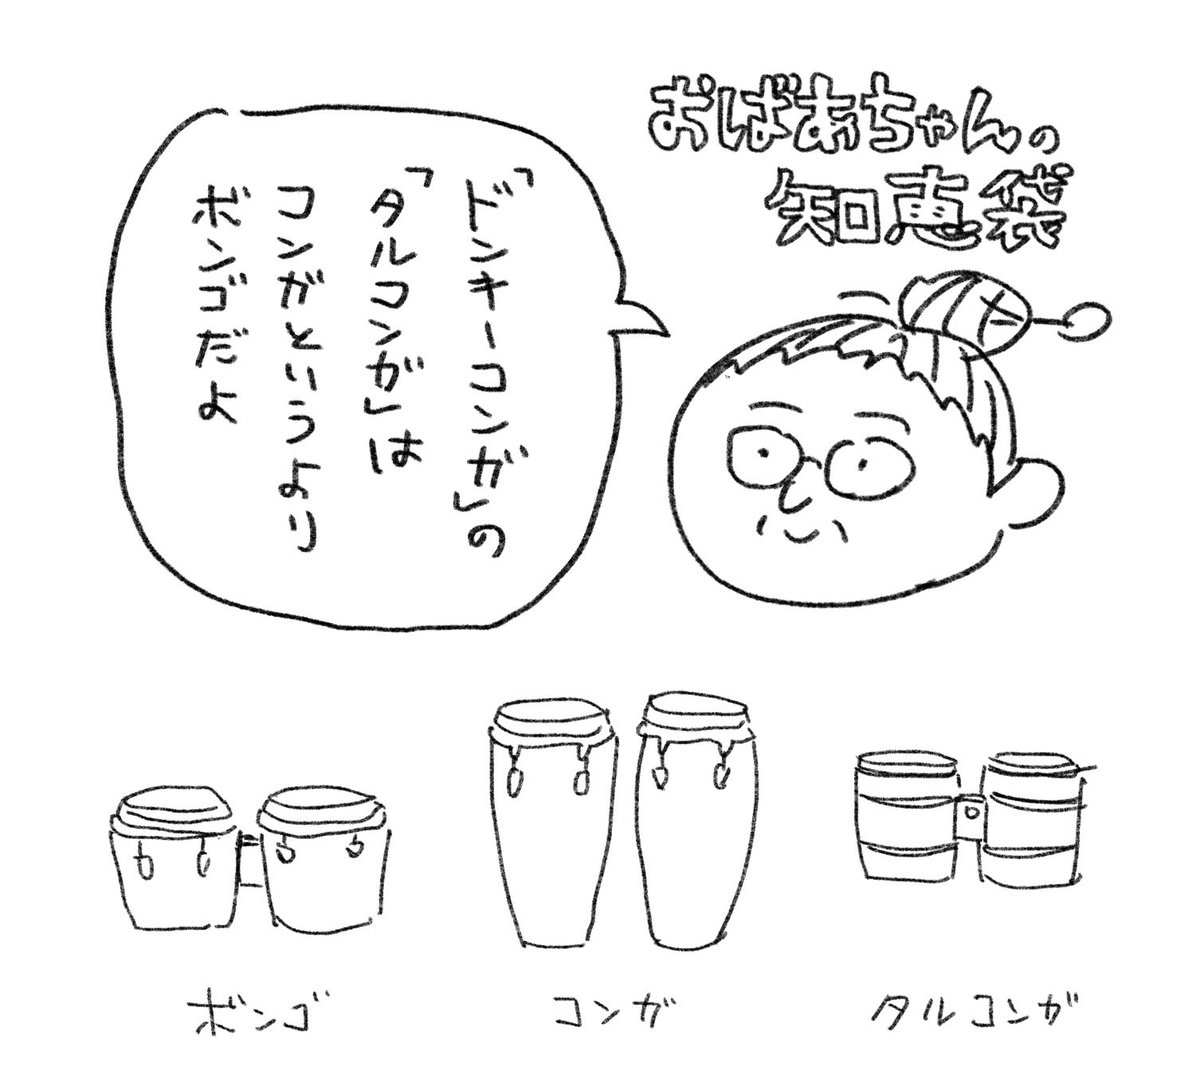 おばあちゃんの
知恵袋
「ドンキーコンガ」の
「タルコンガ」は
コンガというより
ボンゴだよ
ボンゴ
コンガ
タルコンガ